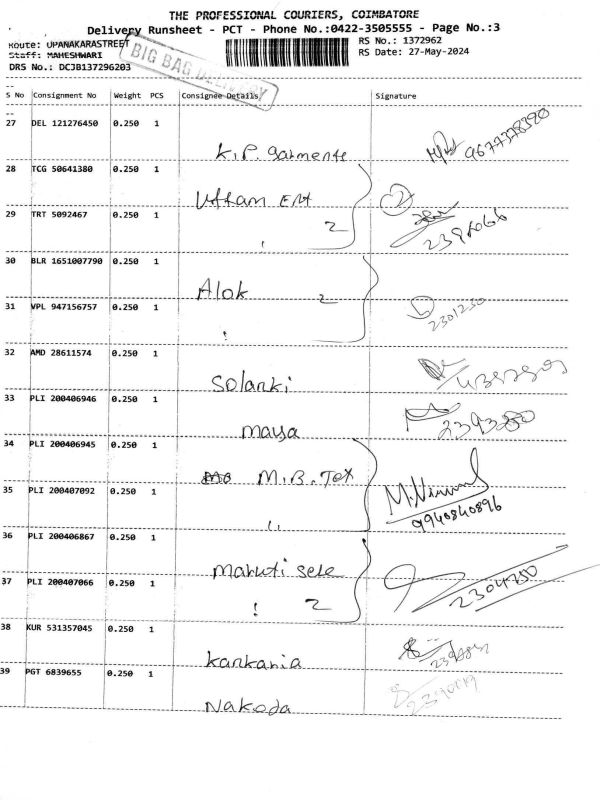 THE PROFESSIONAL COURIERS, COIMBATORE
Delivery Runsheet - PCT - Phone No.:0422-3505555 - Page No.:3
Route: UPANAKARASTREET
RS No.: 1372962
Staff: MAHESHWARI
RS Date: 27-May-2024
DRS No.: DCJB137296203
BIG BAG DELIVERY
S No Consignment No Weight PCS Consignee Details Signature
27 DEL 121276450 0.250 1
K.P. garments 9677378390
28 TCG 50641380 0.250 1
Uttam Ent 2
29 TRT 5092467 0.250 1
2
30 BLR 1651007790 0.250 1
Alok 2
31 VPL 947156757 0.250 1
2301250
32 AMD 28611574 0.250 1
Solanki
33 PLI 200406946 0.250 1
maya 2393280
34 PLI 200406945 0.250 1
M.B. Tex
35 PLI 200407092 0.250 1
9940840896
36 PLI 200406867 0.250 1
maruti sele
37 PLI 200407066 0.250 1
2 2304250
38 KUR 531357045 0.250 1
kankania
39 PGT 6839655 0.250 1
Nakoda